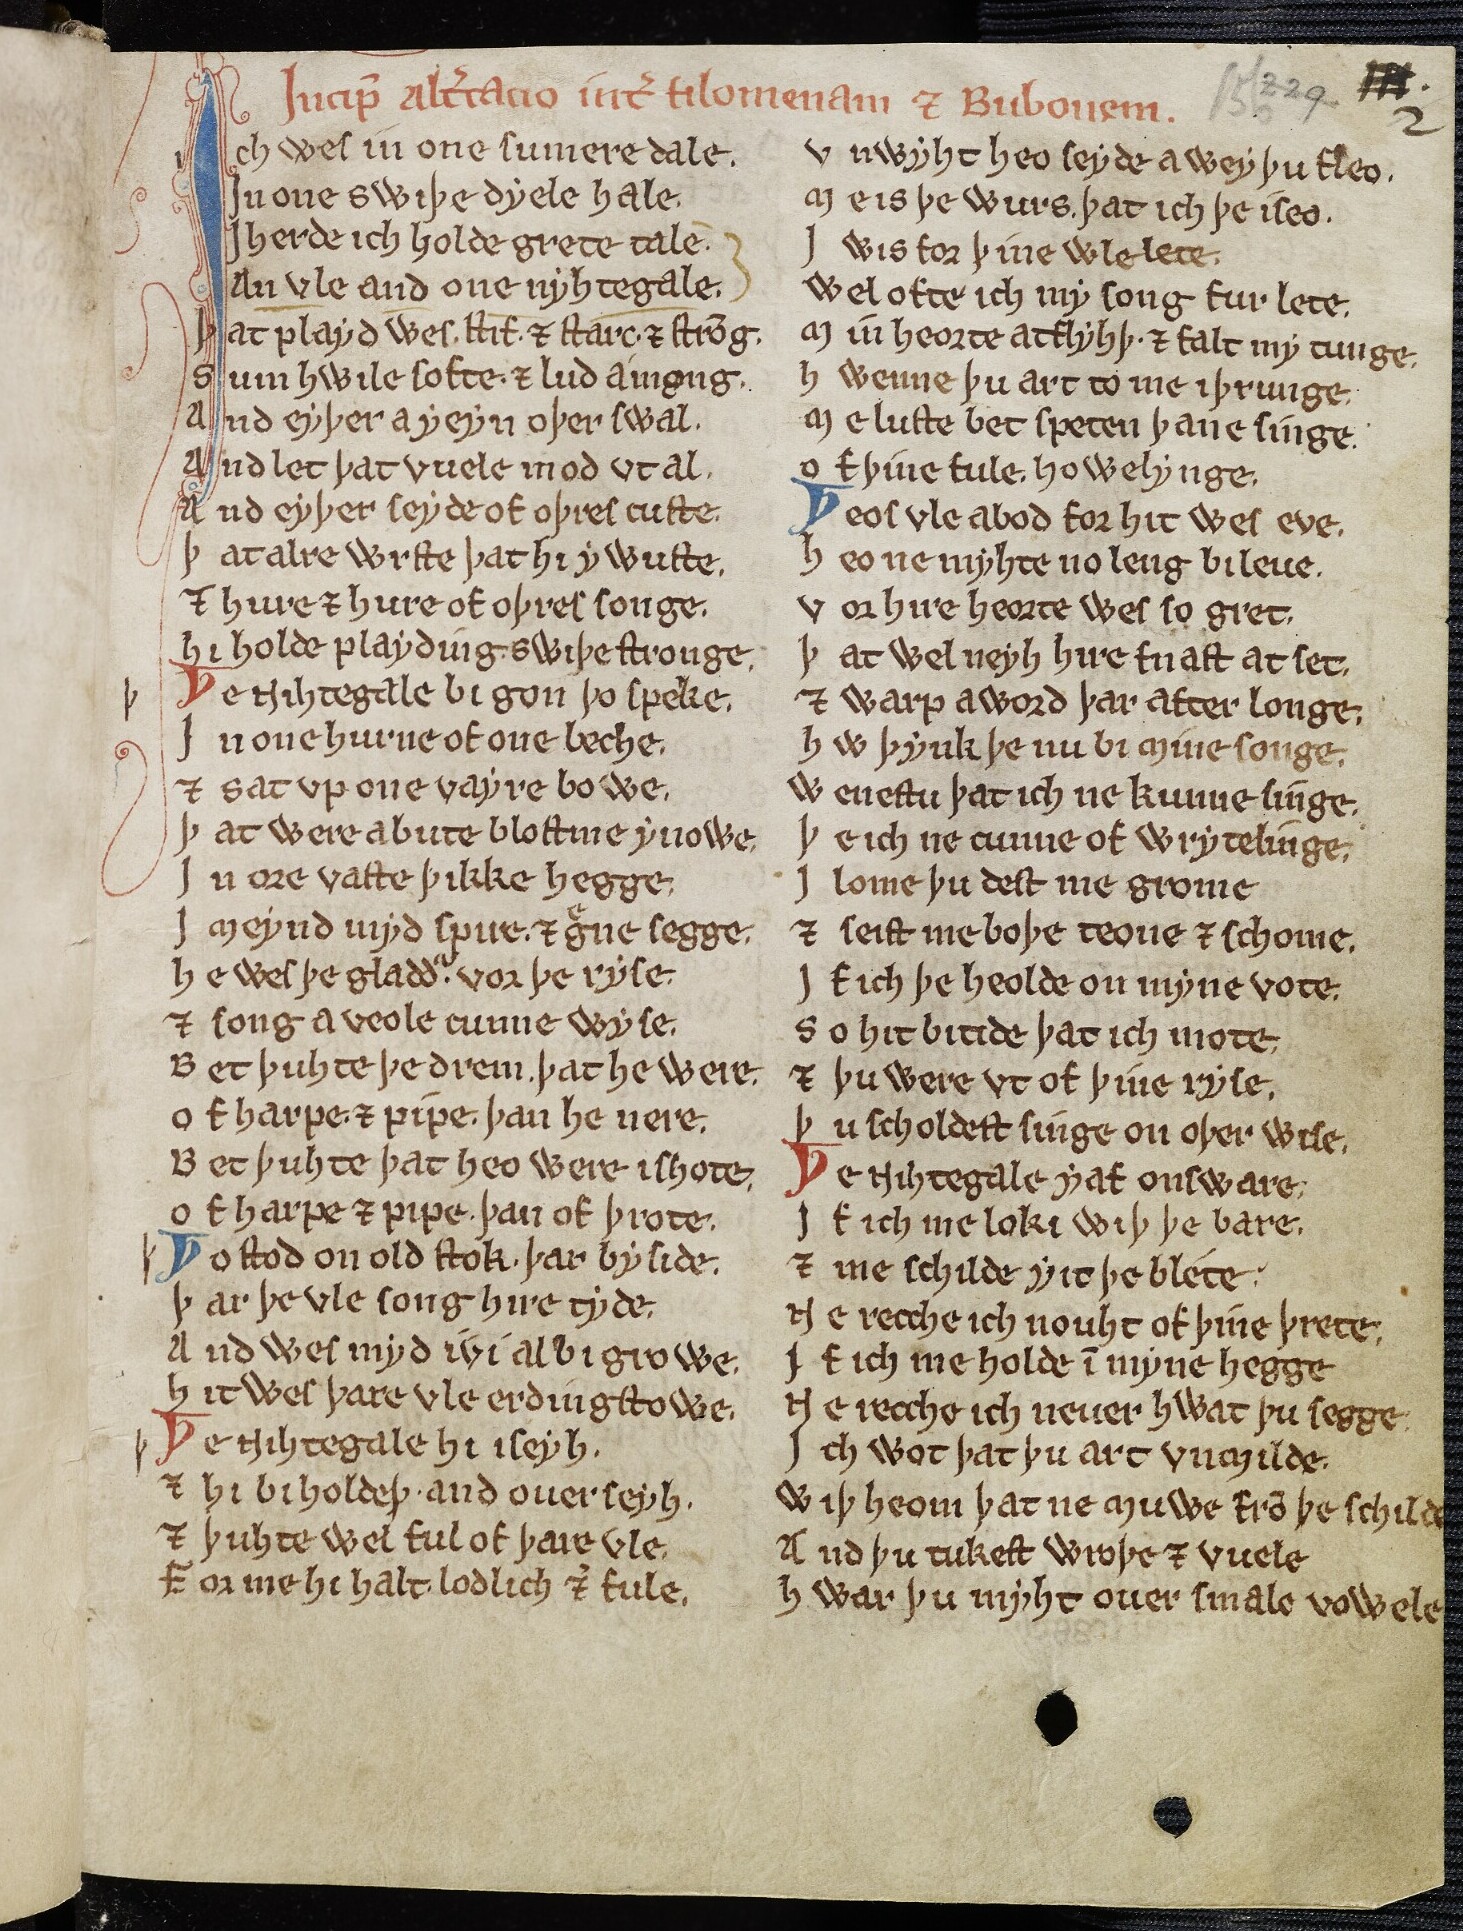 Incip̄ Altc̄acio int̄ filomenam ⁊ Bubonem.
229
2
Ich wes in one sumere dale.
In one swiþe dyele hale.
Iherde ich holde grete tale.
An vle and one nyhtegale.
Þat playd wes. stif. ⁊ starc. ⁊ strōg.
Sum hwile softe. ⁊ lud among.
And eyþer ayeyn oþer swal.
And let þat vuele mod vt al.
And eyþer seyde of oþres custe.
Þat alre wrste þat hi ywuste.
I hure ⁊ hure of oþres songe.
hi holde playding swiþe stronge.
Þe Nihtegale bi gon þo speke.
In one hurne of one beche.
⁊ sat vp one vayre bowe.
þat were abute blostme ynowe.
In ore vaste þikke hegge.
Imeynd myd spire. ⁊ gͤne segge.
he wes þe gladdʳ. vor þe ryse.
⁊ song a veole cunne wyse.
Bet þuhte þe drem. þat he were.
of harpe. ⁊ pipe. þan he nere.
Bet þuhte þat heo were ishote.
of harpe ⁊ pipe. þan of þrote.
Þo stod on old stok. þar byside.
þar þe vle song hire tyde.
And wes myd ivi al bi growe.
hit wes þare vle erdingstowe.
Þe Nihtegale hi iseyh.
⁊ hi biholdeþ. and ouerseyh.
⁊ þuhte wel ful of þare vle.
For me hi halt. lodlich ⁊ fule.
Vnwyht heo seyde awey þu fleo.
Me is þe wurs. þat ich þe iseo.
Iwis for þine wle lete.
Wel ofte ich my song fur lete.
Min heorte atflyhþ. ⁊ falt my tunge.
hwenne þu art to me iþrunge.
Me luste bet speten þane singe.
of þine fule. howelynge.
Þeos vle abod for hit wes eve.
heo ne myhte no leng bileue.
Vor hire heorte wes so gret.
þat wel neyh hire fnast at set.
⁊ warp a word þar after longe.
hw þynk þe nu bi Mine songe.
Wenestu þat ich ne kunne singe.
þe ich ne cunne of wrytelinge.
Ilome þu dest me grome
⁊ seist me boþe teone ⁊ schome.
If ich þe heolde on myne vote.
So hit bitide þat ich mote.
⁊ þu were vt of þine ryse.
þu scholdest singe on oþer wise.
Þe Nihtegale yaf onsware.
If ich me loki wiþ þe bare.
⁊ me schilde yit þe blete.
Ne recche ich nouht of þine þrete.
If ich me holde ī myne hegge
Ne recche ich neuer hwat þu segge
Ich wot þat þu art vnMilde.
Wiþ heom þat ne Muwe frō þe schilde
And þu tukest wroþe ⁊ vuele
hwar þu myht ouer smale vowele